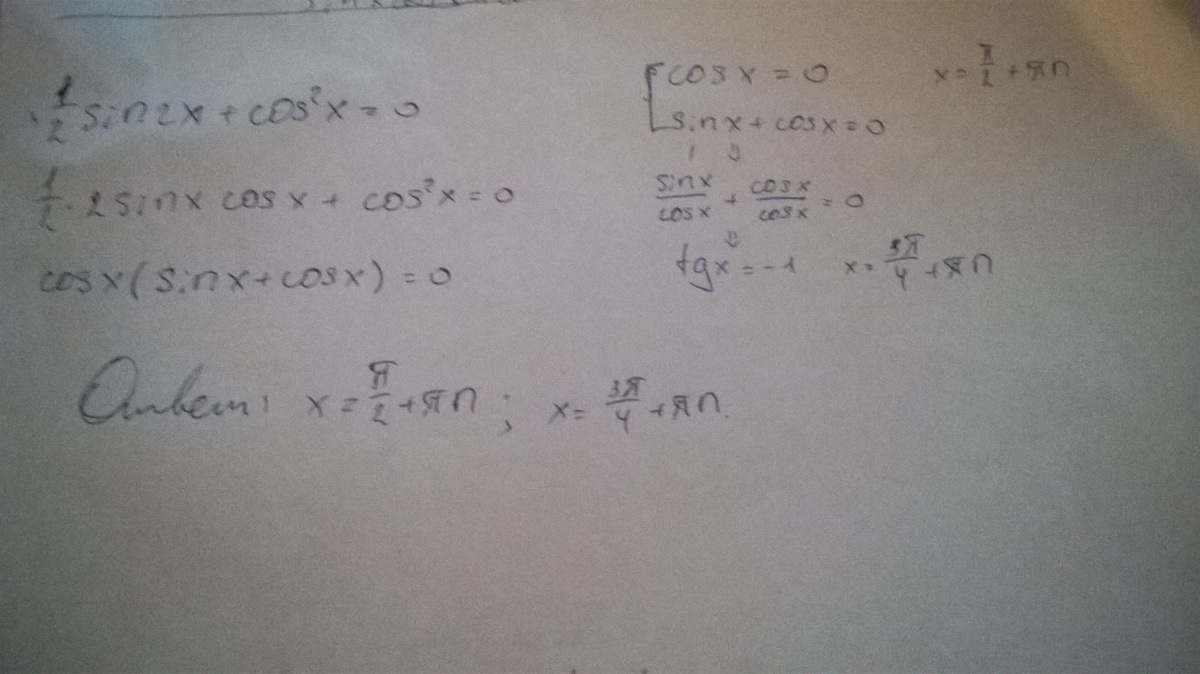 1/2 sin2x + cos²x = 0
1/2 · 2 sinx cosx + cos²x = 0
cosx(sinx + cosx) = 0
[cosx = 0 x = π/2 + πn
sinx + cosx = 0
⇓
sinx/cosx + cosx/cosx = 0
⇓
tgx = -1 x = 3π/4 + πn
Ответ: x = π/2 + πn ; x = 3π/4 + πn.